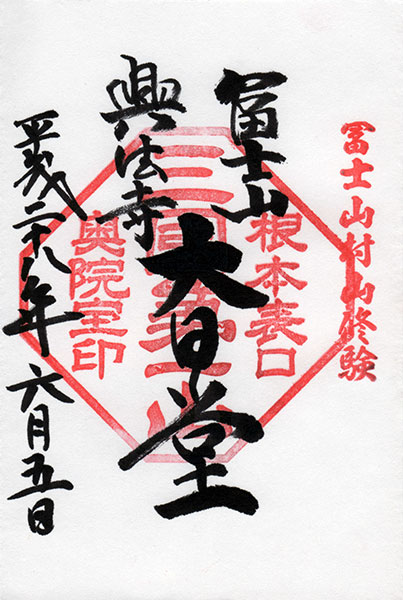 冨士山村山修験
冨士山
根本表口
大日堂
三国第一山
興法寺
奥院宝印
平成二十八年六月五日